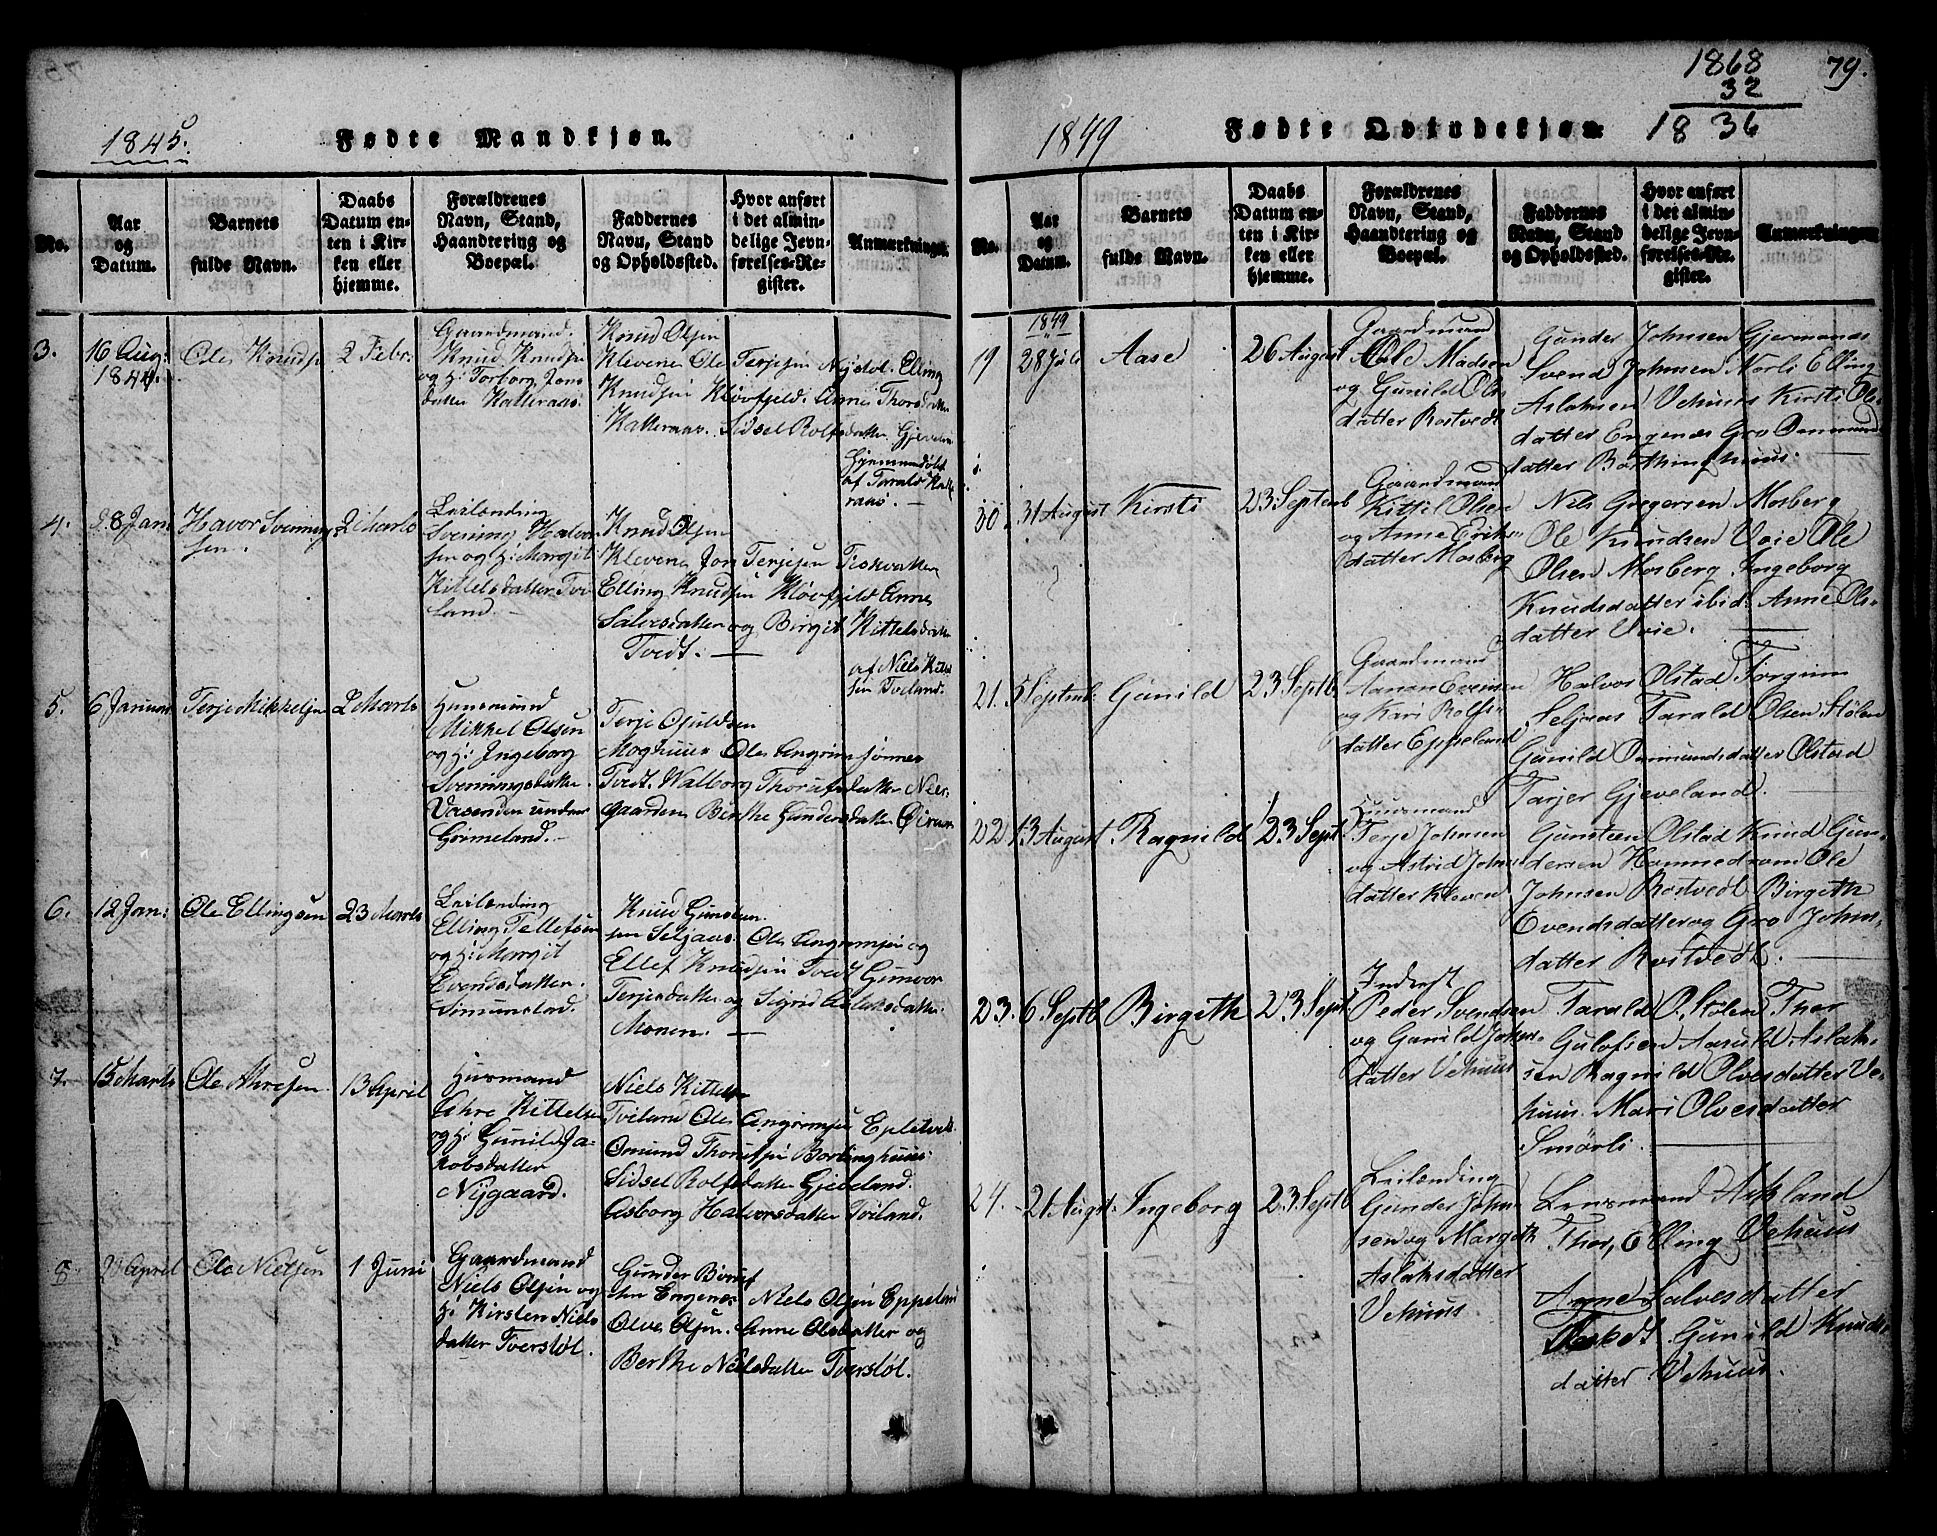 1845.
Fødte Mandkjøn.
No.
Aar og Datum.
Barnets fulde Navn.
Daabs Datum enten i Kirken eller hjemme.
Forældrenes Navn, Stand, Haandtering og Boepæl.
Faddernes Navn, Stand og Opholdssted.
Hvor anført i det almindelige Jevnførelses-Register.
Anmærkninger.
3.
16 Aug: 1844.
Ole Knudsen
2 Febr.
Gaardmand.
Knud Knudsen
og h: Torborg Jons
datter Katteraas
Knud Olsen
Klevene Ole Terjesen Nystøl. Elling
Knudsen Kløvfjeld. Anne Thorsdatter
Katteraas. Sidsel Rolfsdatter Gjeveland
af Tarald Katte
raas. —
4.
28 Jan:
Havor Svenning
sen.
2 Marts
Leilænding
Svening Halvor
sen og h: Margit
Kittelsdatter Tvi
land. —
Knud Olsen
Klevene Jon Terjesen
Elling Knudsen Kløvfjeld Anne
Salvesdatter og Birgit Kittelsdatter
Tvedt. —
af Niels Kittel
sen Tviland.
5.
6 Januar
Terje Mikkelsen
2 Marts
Huusmand
Mikkel Olsen
og h: Ingeborg
Sveningsdatter
Vasenden under
Grimeland. —
Terje Ojuldsen
Moghuus Ole Angrimsønnes
Tvedt. Walborg Thorufsdatter Nier-
gaarden Berthe Gundersdatter
6.
12 Jan:
Ole Ellingsen
23 Marts
Leilænding
Elling Tellefsen
og h: Margit
Evendsdatter.
Simunstad.
Knud Gunsten
sen Seljaas. Ole Angrimsen og
Ellef Knudsen Tvedt Gunvor
Terjesdatter og Sigrid Aslaksdatter
Monen. —
7.
15 Marts
Ole Ahresen
13 April
Husmand
Ahre Kittelsen
og h: Gunild Ja-
kobsdatter
Nygaard.
Niels Kittelsen
Tviland Ole Angrimsen Epletvedt
Omund Thorufsen Bortinghuus
Sidsel Rolfsdatter Gjeveland.
Asborg Halvorsdatter Tviland.
8.
April
Ole Nielsen
1 Juni
Gaardmand
Niels Olsen og
h: Kirsten Niels
datter Tverstøl.
Gunder
Engenes Niels Olsen Eppeland
Olve Olsen. Anne Olsdatter og
Berthe Nielsdatter Tverstøl.
1868
32
18 36
79.
1849
Fødte Qvindekjøn.
No.
Aar og Datum.
Barnets fulde Navn.
Daabs Datum enten i Kirken eller hjemme.
Forældrenes Navn, Stand, Haandtering og Boepæl.
Faddernes Navn, Stand og Opholdssted.
Hvor anført i det almindelige Jevnførelses-Register.
Anmærkninger.
1849
19
28 Juli
Aase
26 August
Gaardmand
Ole Madsen
og Gunild Ols
datter Rostvedt
Gunder Johnsen Gjermanes
Svend Johnsen Norli Elling
Aslaksen Vehuus Kirsti Ols
datter Engenes Gro Omunds
datter Bortinghuus. —
20.
31 August
Kirsti
23 Septemb
Gaardmand
Kittil Olsen
og Anne Eriks-
datter Mosberg
Nils Gregersen Mosberg,
Ole Knudsen Voie Ole
Olsen Mosberg Ingeborg
Knudsdatter ibid: Anne Ols-
datter Voie. —
21.
5 Septemb:
Gunild
23 Septb
Gaardmand
Aanon Evensen
og Kari Rolfs-
datter Eppeland
Halvor Olstad Torgrim
Seljaas Tarald Olsen Stølen
Gunild Osmundsdatter Olstad
Tarjer Gjeveland. —
22.
13 August
Ragnild
23 Sept
Huusmand
Terje Johnsen
og Astrid Johns
datter Kleven
Gunsteen Olstad Knud Gun-
dersen Hommedrom Ole
Johnsen Rostvedt Birgeth
Evendsdatter og Gro Johns-
datter Rostvedt. —
23.
6 Septb
Birgeth
23 Sept
Inderst
Peder Svendsen
og Gunild Johns-
datter Vehuus
Tarald O. Stølen Thor
Gulofsen Aasuld Aslak-
sen Ragnild Olvesdatter Ve-
huus. Mari Olvesdatter
Smørli. —
24.
21 Augst.
Ingeborg
23 Septb
Leilænding
Gunder John-
sen og Margeth
Aslaksdatter
Vehuus
Lensmand Askland
Thor, Elling Vehuus
Anne Salvesdatter
Gunild Knuds-
datter Vehuus.